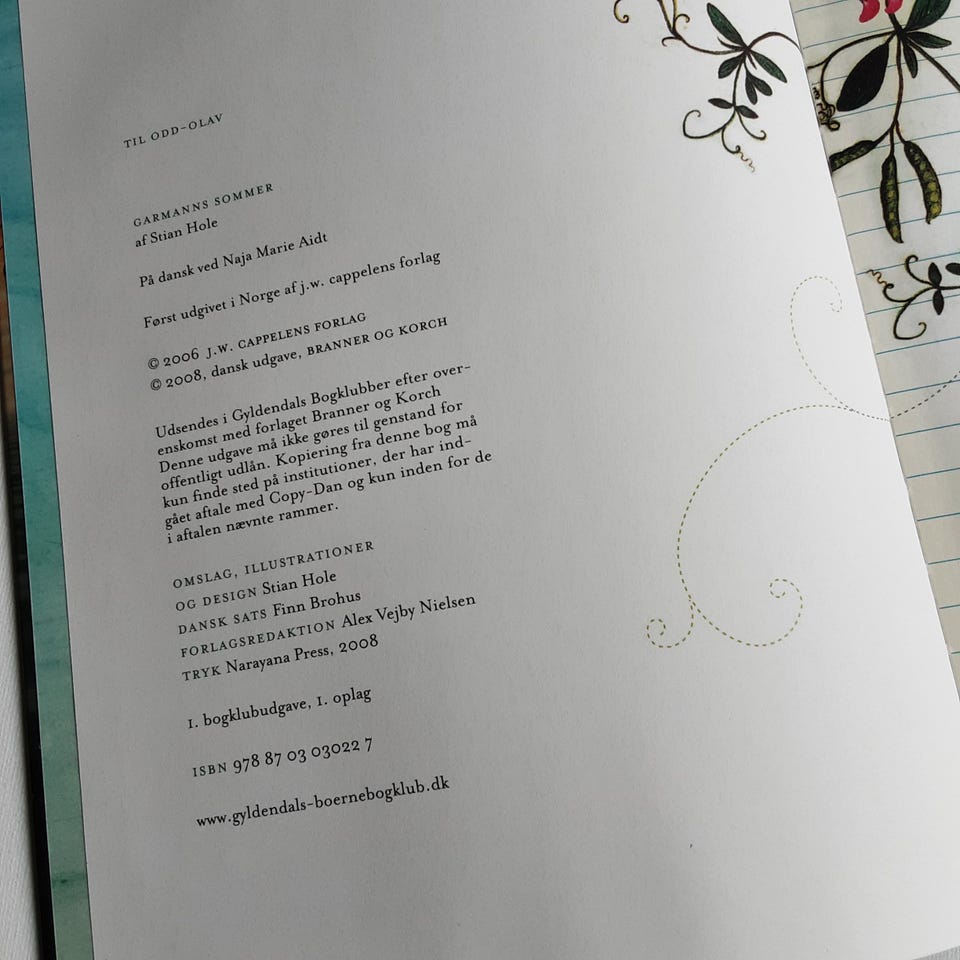 TIL ODD-OLAV
GARMANNS SOMMER
af Stian Hole
På dansk ved Naja Marie Aidt
Først udgivet i Norge af j.w. cappelens forlag
© 2006 J.W. CAPPELENS FORLAG
© 2008, dansk udgave, BRANNER OG KORCH
Udsendes i Gyldendals Bogklubber efter over-
enskomst med forlaget Branner og Korch
Denne udgave må ikke gøres til genstand for
offentligt udlån. Kopiering fra denne bog må
kun finde sted på institutioner, der har ind-
gået aftale med Copy-Dan og kun inden for de
i aftalen nævnte rammer.
OMSLAG, ILLUSTRATIONER
OG DESIGN Stian Hole
DANSK SATS Finn Brohus
FORLAGSREDAKTION Alex Vejby Nielsen
TRYK Narayana Press, 2008
1. bogklubudgave, 1. oplag
ISBN 978 87 03 03022 7
www.gyldendals-boernebogklub.dk